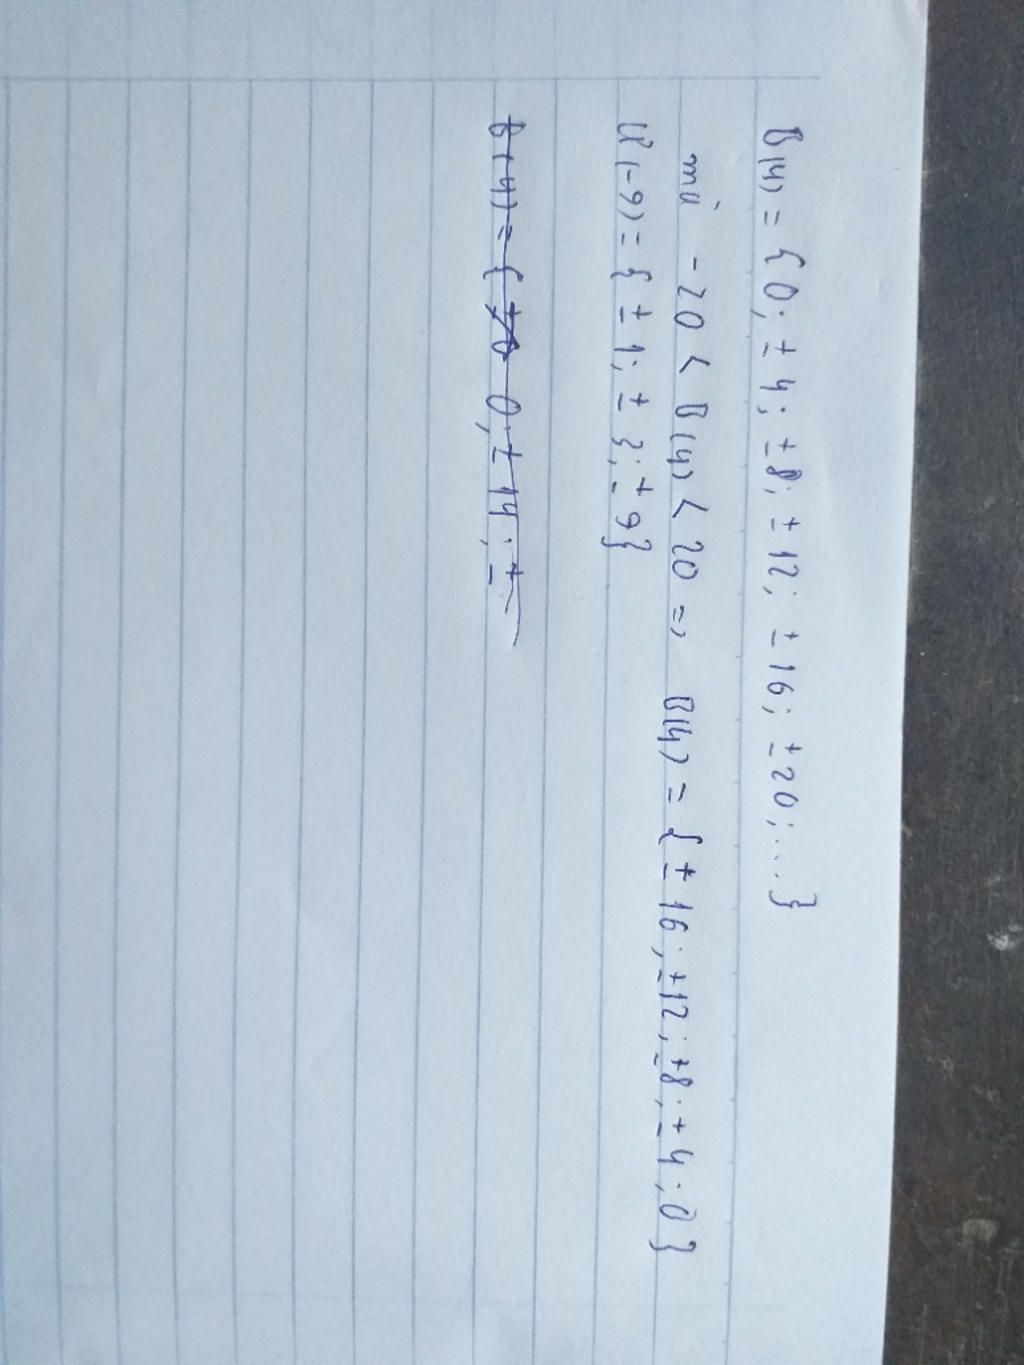 B(4) = {0; ± 4; ±8; ± 12; ± 16; ±20; ...}
mà -20 < B(4) < 20 => B(4) = {± 16; ±12; ±8; ± 4; 0}
Ư(-9) = {± 1; ± 3; ± 9}
B(4) = { ±0 0; ± 14; ±